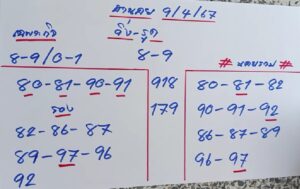 ฮานอย 9/4/67
8-9/0-1
วิ่ง-รูด
8-9
80-81-90-91
รอง
82-86-87
89-97-96
92
918
179
# หลยรวม #
80-81-82
90-91-92
86-87-89
96-97